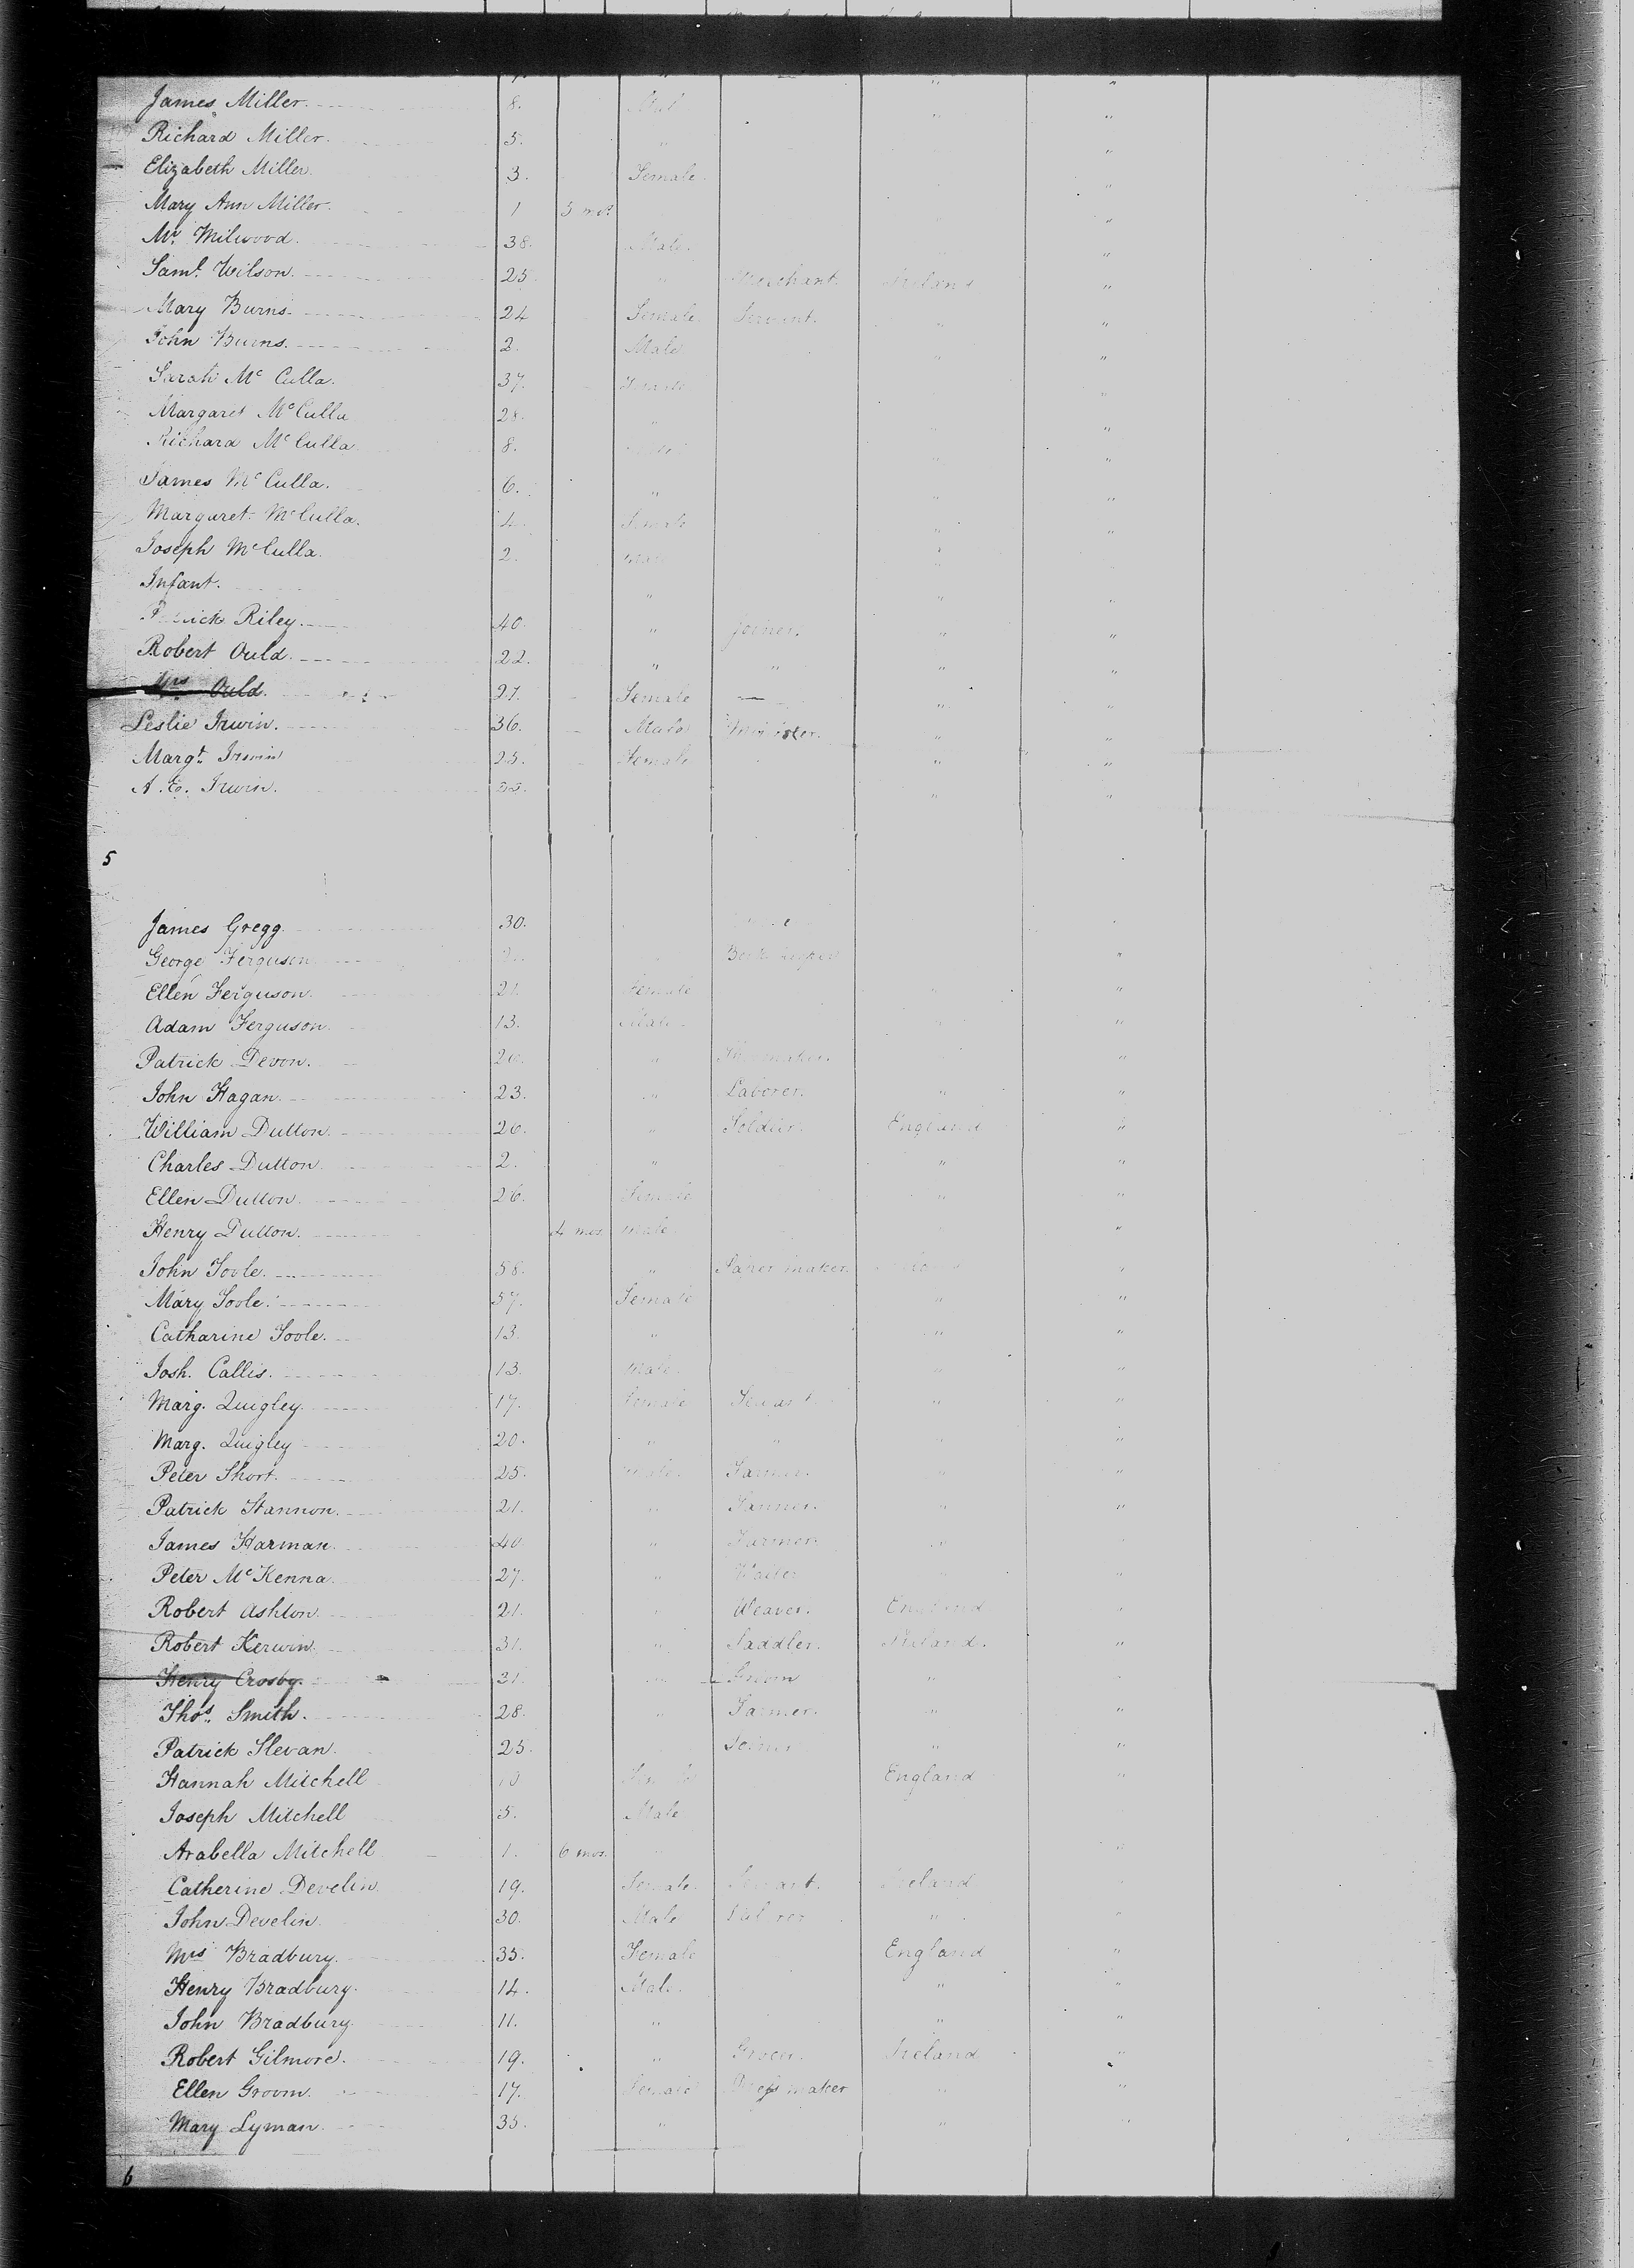 James Miller. 8. "
Richard Miller. 5. " "
Elizabeth Miller. 3. Female. "
Mary Ann Miller. 1 3 mos "
Mr. Milwood. 38. Male. "
Saml. Wilson. 25. Merchant. Ireland "
Mary Burns. 24 Female. Servant. " "
John Burns. 2. Male " "
Sarah Mc Culla. 37. Female "
Margaret Mc Culla 28. " "
Richard Mc Culla 8. " "
James Mc Culla. 6. " " "
Margaret Mc Culla. 4. Female " "
Joseph Mc Culla. 2. Male "
Infant. " " "
Riley. 40. " Joiner. " "
Robert Ould. 22. " " " "
Mrs Ould. 27. Female — " "
Leslie Irwin. 36. Male Minister. " "
Margt. Irwin 25. Female " "
A. E. Irwin. " "
5
James Gregg. 30.
George Ferguson Bookkeeper "
Ellen Ferguson. 21. Female "
Adam Ferguson. 13. Male "
Patrick Devon. 20. " Shoemaker. "
John Hagan. 23. " Laborer. " "
William Dutton. 26. " Soldier. England "
Charles Dutton. 2. " " "
Ellen Dutton. 26. Female " "
Henry Dutton. 4 mos Male "
John Toole. 58. " Paper maker. "
Mary Toole. 57. Female " "
Catharine Toole. 13. " " "
Josh. Callis. 13. Male " "
Marg. Quigley. 17. Female Servant. " "
Marg. Quigley 20. " " " "
Peter Short. 25. Male. " "
Patrick Hannon. 21. " " "
James Harman. 40 " Farmer. "
Peter Mc Kenna. 27. " "
Robert Ashton. 21. " Weaver. England "
Robert Kerwin. 31. " Saddler. Ireland. "
Henry Crosby. 21. Groom " "
Thos. Smith. 28. " Farmer. " "
Patrick Slevan. 25. " "
Hannah Mitchell England "
Joseph Mitchell 5. Male
Arabella Mitchell 1. 6 mos. "
Catherine Develin. 19. Female. Servant. Ireland "
John Develin. 30. Male " "
Mrs Bradbury. 35. Female England "
Henry Bradbury. 14. Male. " "
John Bradbury. 11. " " "
Robert Gilmore. 19. " Grocer. Ireland "
Ellen Groom. 17. Female Dress maker " "
Mary Lyman. 35. " " "
6